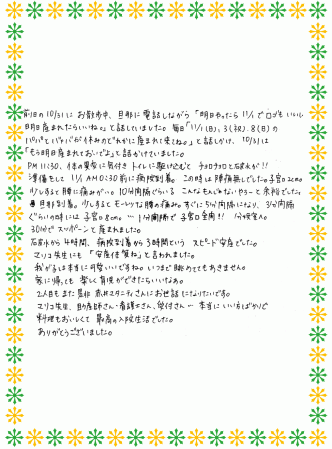 前日の10/31に お散歩中、旦那に電話しながら「明日やったら 11/1でゴロもいいし
明日産まれたらいいね。」と話していました。毎日「11/1(日)、3(祝)、8(日)の
パパとババが休みのどれかに産まれて来てね。」と話しかけ、10/31は
「もう明日産まれておいでよ」と話かけていました。
PM11:30、
トイレに駆け込むと チョロチョロと破水が!!
準備をして 11/1 AM0:30前に病院到着。この時は陣痛無しでした。子宮口2cm。
少しすると腰に痛みがい。10分間隔ぐらい。こんなもんじゃないやろーと余裕でした。
旦那到着。少しするとモーレツな腰の痛み。すぐに5分間隔になり、3分間隔
ぐらいの時には子宮口8cm。… 1分間隔で子宮口全開!! 分娩室へ。
30分でスッポーンと産まれました。
破水から4時間、病院到着から3時間という スピード安産でした。
マリコ先生にも 「安産体質ね」と言われました。
我が子は本当に可愛いいですね。いつまで眺めててもあきません。
家に帰っても 楽しく育児ができたらいいなぁ。
2人目もまた是非
マタニティさんにお世話になりたいです。
マリコ先生、助産師さん・看護士さん、受付さん… 本当にいい方ばかりで
料理もおいしくて 最高の入院生活でした。
ありがとうございました。